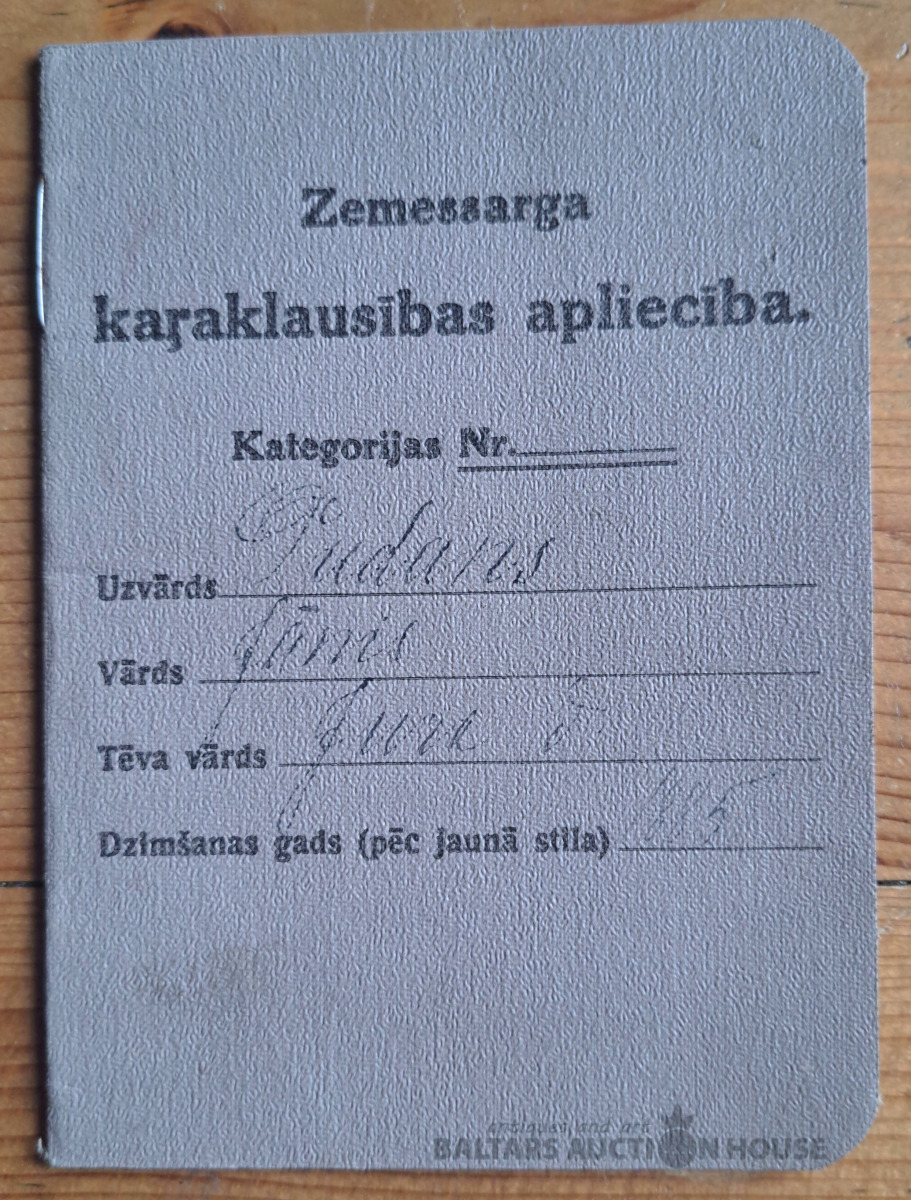 Zemessarga
kaŗaklausības apliecība.
Kategorijas Nr.
Uzvārds Pudans
Vārds Jānis
Tēva vārds Jura d
Dzimšanas gads (pēc jaunā stila)
antiques and art
BALTARS AUCTION HOUSE